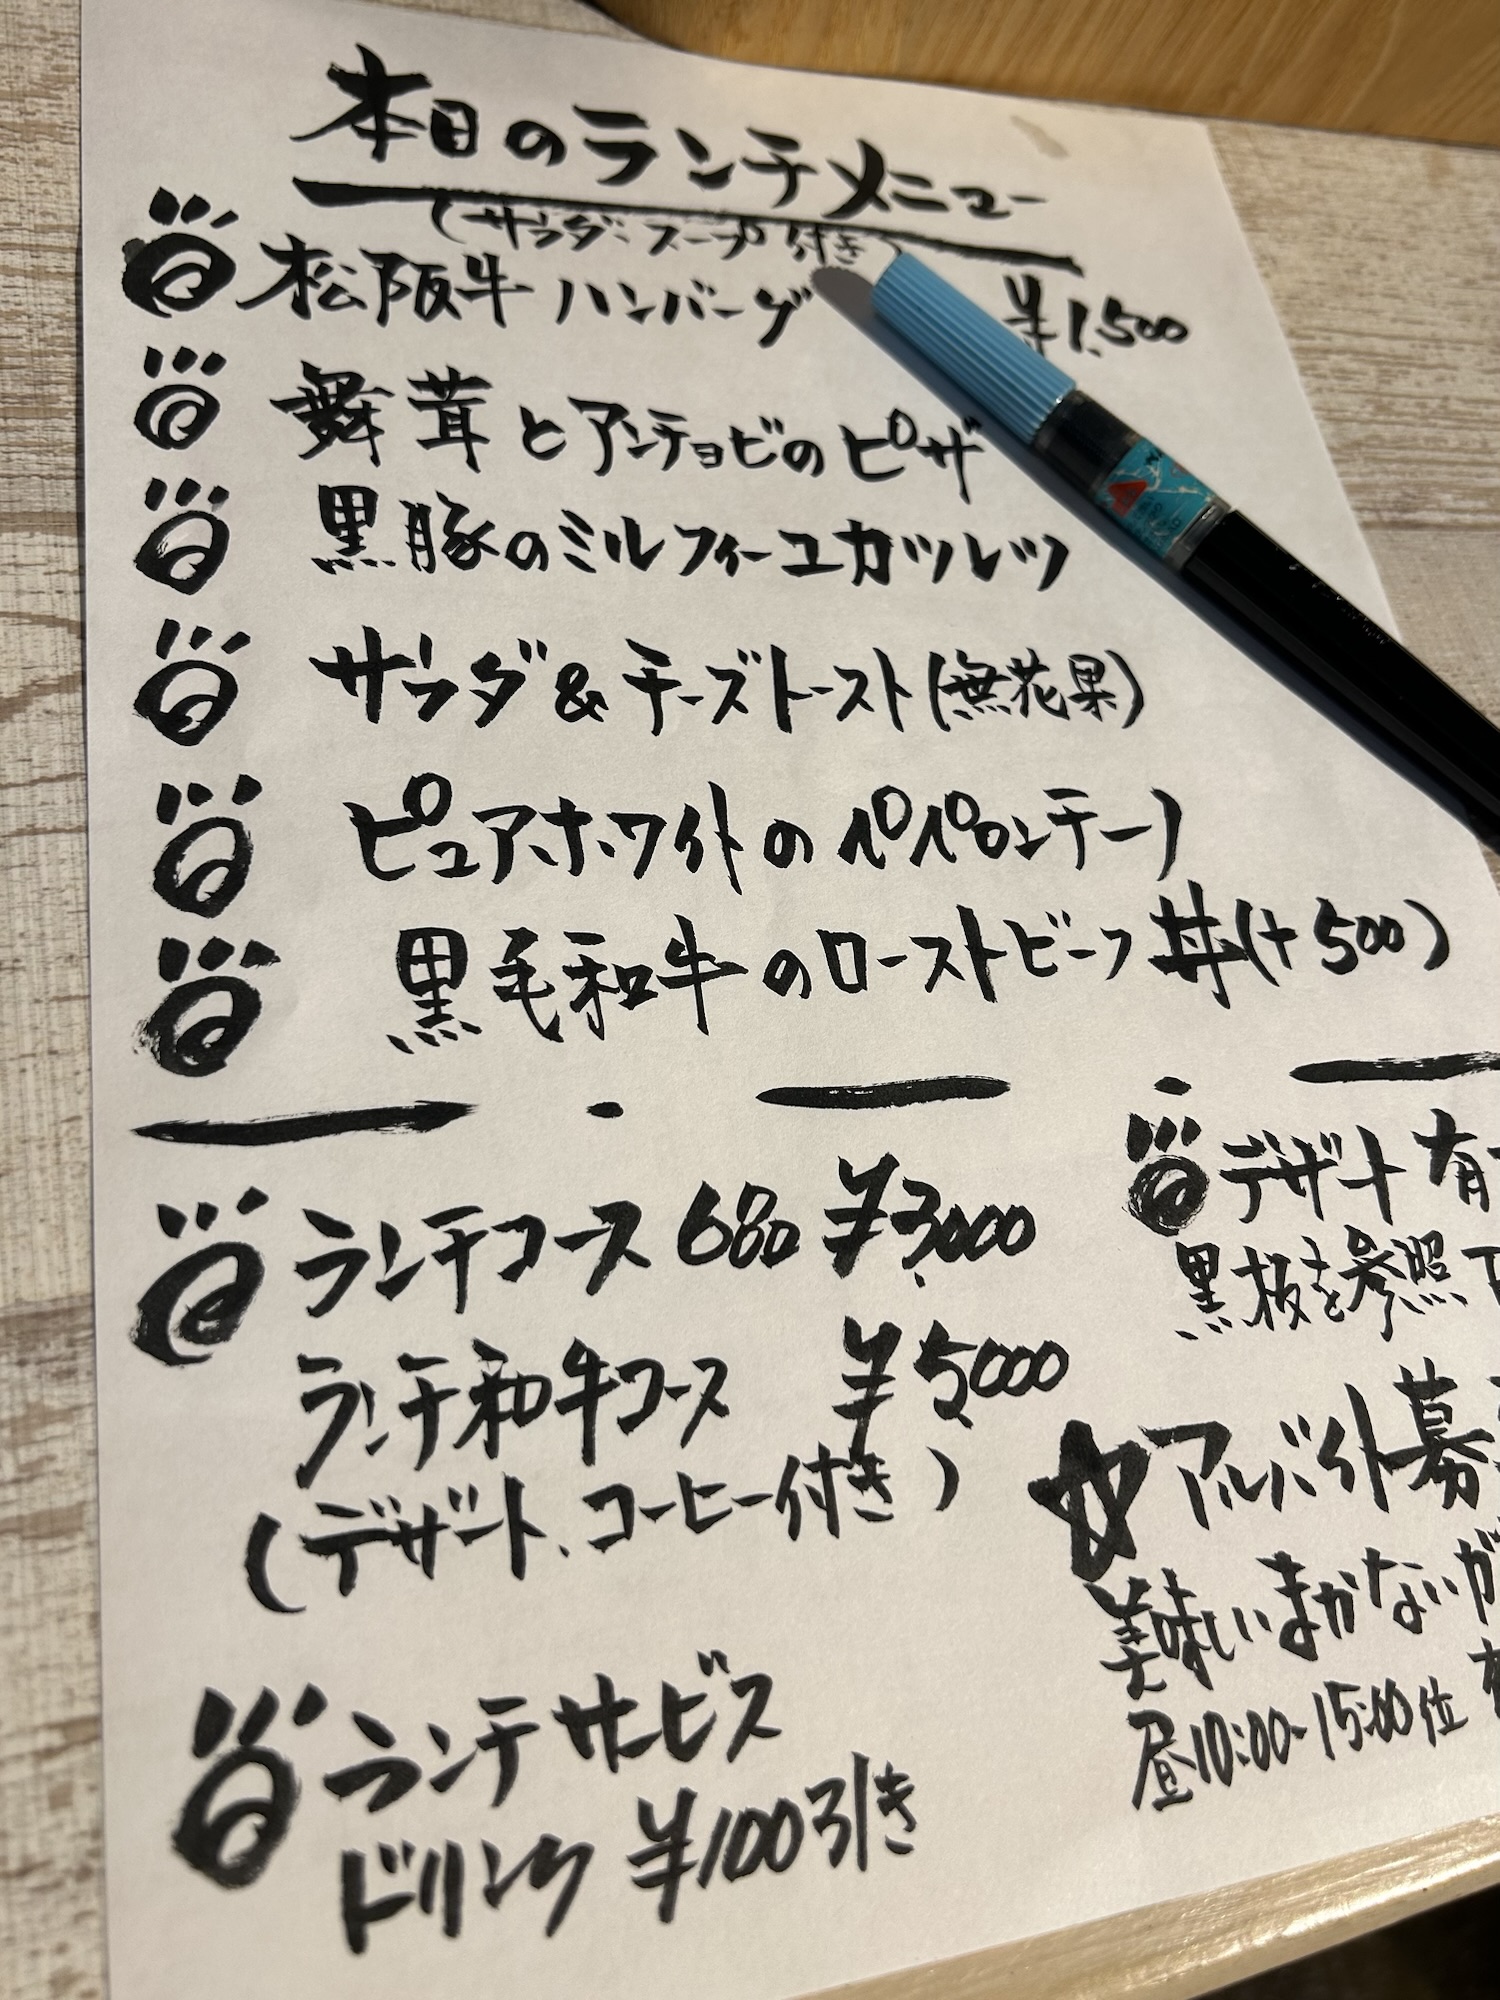 本日のランチメニュー
(サラダ・スープ付き)
松阪牛ハンバーグ ¥1,500
舞茸とアンチョビのピザ
黒豚のミルフィーユカツレツ
サラダ&チーズトースト(無花果)
ピュアホワイトのペペロンチーノ
黒毛和牛のローストビーフ丼(+500)
ランチコース680 ¥3,000
ランチ和牛コース ¥5,000
(デザート、コーヒー付き)
ランチサービス
ドリンク¥100引き
デザート有
黒板を参照
アルバイト募
美味しいまかないが
昼10:00-15:00位